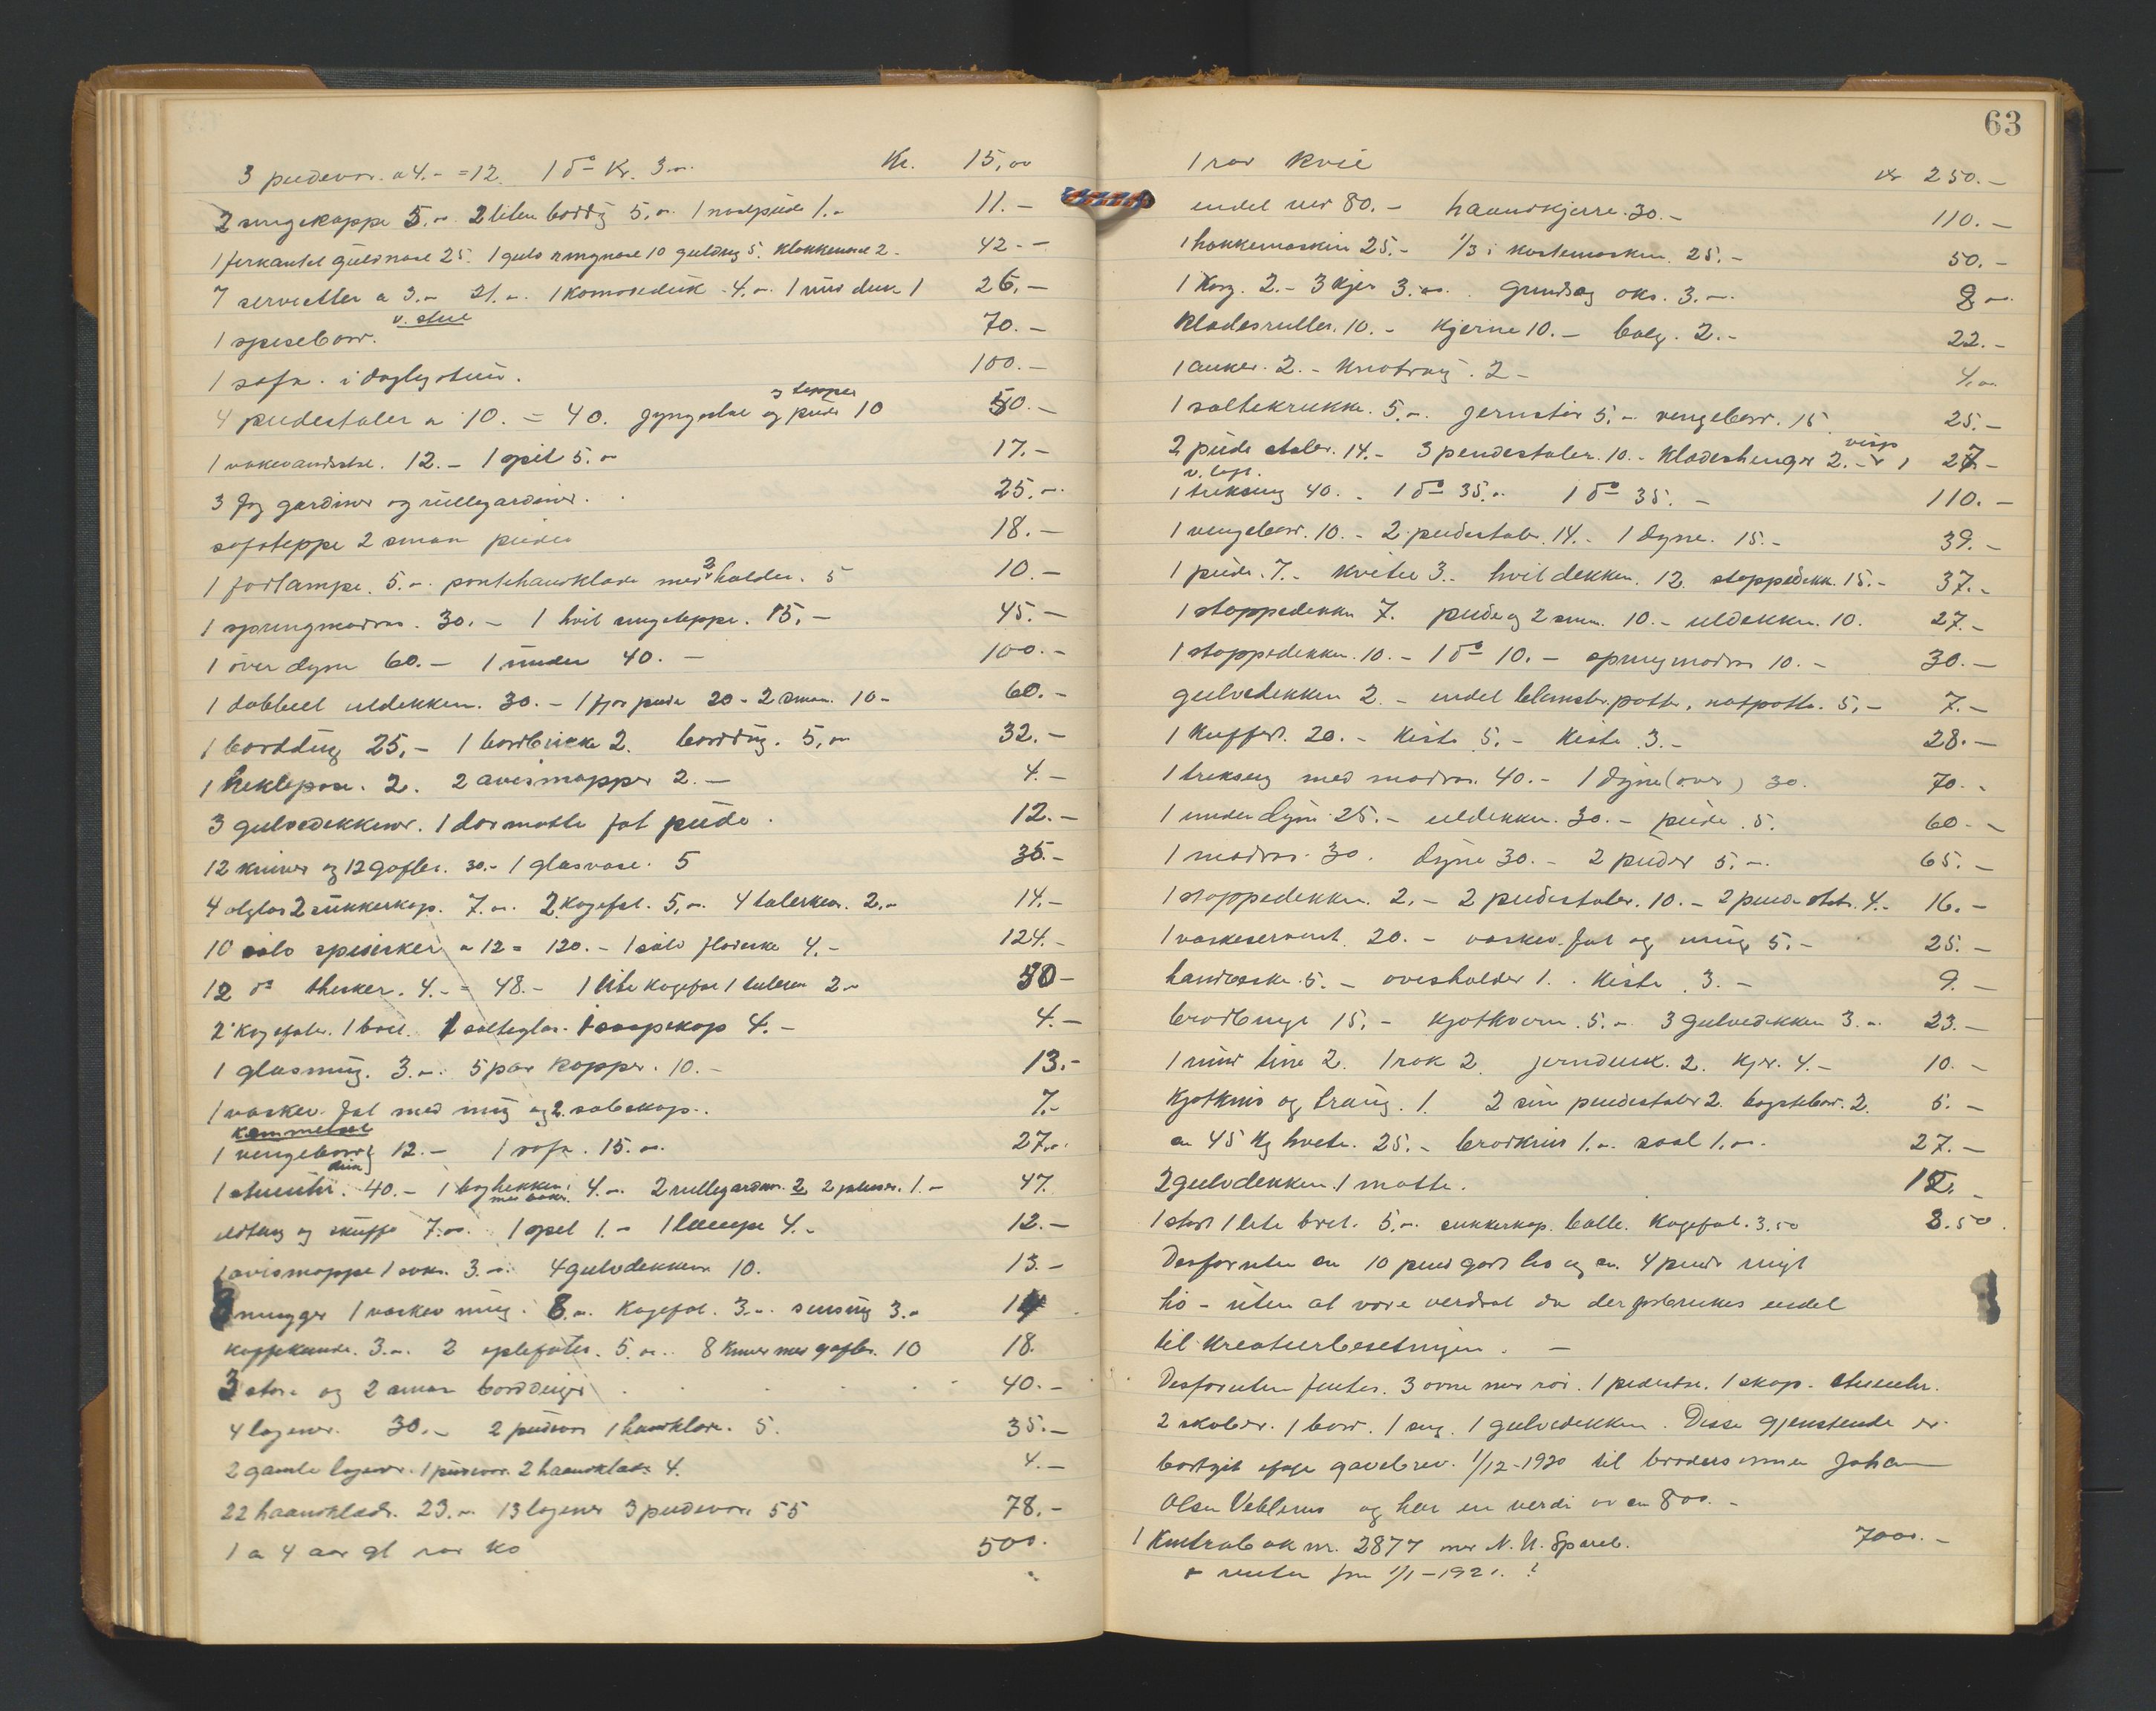 3 pudevar. a 4.- = 12. 1 do Kr. 3.- Kr. 15,00
2 sengekappe 5.- 2 liten bordtöi 5.- 1 naalpude 1.- 11.-
1 firkantet guldnaal 25. 1 guld ringnaal 10 guldring 5. Klokkenaal 2.- 42.-
7 servietter a 3.- 21.- 1 Komodeduk 4.- 1 rund duk 1 26.-
v. stue
1 spisebord. 70.-
1 sofa. i dagligstue. 100.-
4 pudestoler a 10. = 40. gyngestol og pude 10 50.-
og tepper
1 vaskevandsstel. 12.- 1 speil 5.- 17.-
3 fag gardiner og rullegardiner. 25.-
sofateppe 2 smaa puder 18.-
1 fotlampe. 5.- pontehaandklæde med 2 holder. 5 10.-
1 springmadras. 30.- 1 hvit sengeteppe. 15.- 45.-
1 over dyne 60.- 1 under 40.- 100.-
1 dobbelt uldekken. 30.- 1 fjær pude 20- 2 smaa. 10- 60.-
1 borddug 25.- 1 bordbrikke 2. borddug. 5,- 32.-
1 heklepose. 2. 2 avismapper 2.- 4.-
3 gulvdekkener. 1 dormatte fot pude. 12.-
12 kniver og 12 gafler. 30.- 1 glasvase. 5 35.-
4 ølglas 2 sukkerkop. 7.- 2 kagefat. 5,- 4 talerken. 2.- 14.-
10 sølv spiseskeer a 12 = 120.- 1 sølv flødeske 4.- 124.-
12 do theskeer. 4.- = 48.- 1 lite kagefat 1 talerken 2- 50-
2 kagefate. 1 bret. 1 salteglas. 1 saapekop 4.- 4.-
1 glasmug. 3.- 5 par kopper. 10.- 13.-
1 vaskev. fat med mug og 2 sabekop.. 7.-
Kammerset
1 vengebord 12.- 1 sofa. 15.- 27.-
1 stueuhr. 40.- 1 boghekken 4.- 2 rullegardin. 2 2 1.- 47.
med bøker.
ildtang og skuffe 7.- 1 speil 1.- 1 lampe 4.- 12.-
1 avismappe 1 3.- 4 gulvdekken 10. 13.-
3 mugger 1 vaskev mug. 8.- Kagefat. 3.- 3.- 14
kaffekande. 3.- 2 eplefater. 5.- 8 kniver med gafler. 10 18.
3 store og 2 smaa bordduger 40.-
4 lagener. 30.- 2 pudevar 1 haandklæde. 5. 35.-
2 gamle lagener. 1 pudevar. 2 haandklæde 4. 4.-
22 haandklæde. 23.- 13 lagener 3 pudevar 55 78.-
1 a 4 aar gl rød ko 500.-
63
1 rød kvie Kr 250.-
endel ved 80.- haandkjerre. 30.- 110.-
1 hakkemaskin 25.- 1/3 i kastemaskin. 25.- 50.-
1 korg. 2.- 3 kjer 3.- grindsag øks. 3.- 8.-
Klædesruller. 10.- Kjerne 10.- balg. 2.- 22.-
1 anker. 2.- 2- 4.-
1 saltekrukke. 5.- jernstör 5.- vengebord. 15 25.-
2 pude stoler. 14.- 3 pendestoler. 10.- Klædeshenger 2.- 1 visp 27-
v. loft.
1 trekseng 40.- 1 do 35.- 1 do 35.- 110.-
1 vengebord. 10.- 2 pudestoler. 14.- 1 dyne. 15.- 39.-
1 pude. 7.- kvitel 3.- hvitdekken. 12. stoppedekk. 15.- 37.-
1 stoppedekken 7. pude og 2 smaa. 10.- uldekken. 10. 27.-
1 stoppedekken. 10.- 1 do 10.- springmadras 10.- 30.-
gulvdekken 2.- endel blomsterpotter, natpotte. 5.- 7.-
1 kuffert. 20.- kiste 5.- kiste 3.- 28.-
1 trekseng med madras. 40.- 1 dyne (over) 30. 70.-
1 under dyne 25.- uldekken. 30.- pude. 5. 60.-
1 madras. 30. dyne 30.- 2 puder 5.- 65.-
1 stoppedekken. 2.- 2 pudestoler. 10.- 2 pude stoler. 4.- 16.-
1 vaskeservant. 20.- vaskev. fat og mug 5.- 25.-
handveske. 5.- avisholder 1. kiste 3.- 9.-
brødbinge 15.- kjøtkvern. 5.- 3 gulvdekken 3.- 23.-
1 rund tine 2. 1 rok 2 jerndunk. 2. kjer. 4.- 10.-
Kjøtkniv og traug. 1. 2 sm pendestoler 2. bagstebord. 2. 5.-
ca 45 kg hvete. 25.- brødkniv 1.- saal 1.- 27.-
2 gulvdekken 1 matte. 12.-
1 stor 1 lite bret. 5.- sukkerkop. balle. kagefat. 3.50 8.50.
Desforuten ca 10 pund godt høi og ca. 4 pund ringt
hö - uten at være verdsat da der forbrukes endel
til kreaturbesetningen. -
Desforuten findes. 3 ovne med rör. 1 pudestol. 1 skap. stueuhr.
2 skaber. 1 bord. 1 seng. 1 gulvdekken. Disse gjenstande er
bortgit efter gavebrev. 1/12-1920 til brodersønnen Johan
Olsen Veblerud og har en verdi av ca 800.-
1 Kontrabok nr. 2877 med N. U. Spareb. 7000.-
+ renter fra 1/1-1921. ?